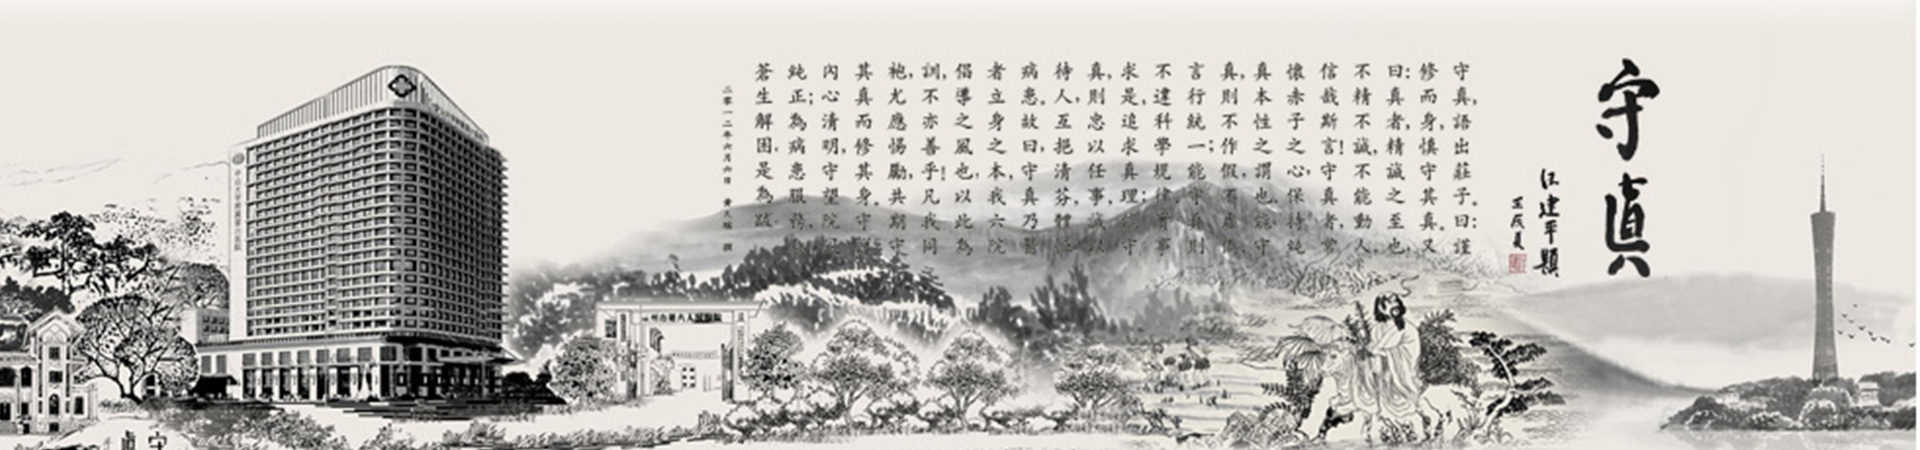 守真
江建平題
壬辰夏
守真,語出莊子。曰:謹
修而身,慎守其真。又
曰:真者,精誠之至也,
不精不誠,不能動人。
信哉斯言!守真者,常
懷赤子之心,保持純
真本性之謂也。能守
真,則不作假,不虛偽,
言行統一;能守真,則
不違科學規律,實事
求是,追求真理;能守
真,則忠以任事,誠以
待人,互挹清芬,體恤
病患。故曰,守真乃醫
者立身之本。我六院
倡導之風也,以此為
訓,不亦善乎!凡我同
袍,尤應惕勵,共期守
其真而修其身。守
內心清明,守望院
純正;為病患服務,為
蒼生解困。是為跋。
二零一二年六月六日 黃天驥 撰